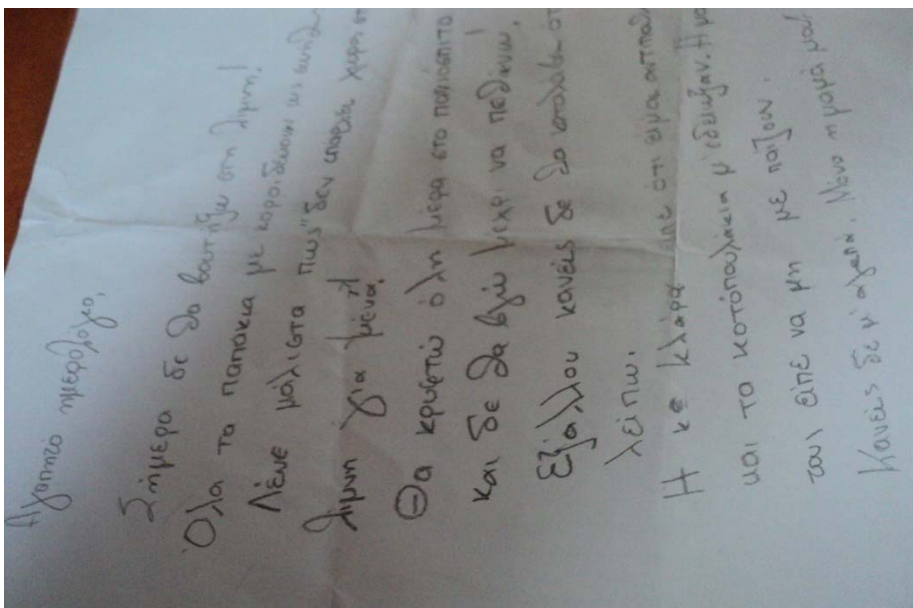 Αγαπητό ημερολόγιο,
Σήμερα δε θα βουτήξω στη λίμνη!
Όλα τα παπάκια με κοροϊδεύουν
Λένε μάλιστα πως "δεν υπάρχει χώρος στ
λίμνη για μένα"!
Θα κρυφτώ όλη μέρα στο παλιόσπιτο
και δε θα βγω μέχρι να πεθάνω!
Εξάλλου κανείς δε θα καταλάβει ότ
λείπω.
Η κ Κλάρα είπε ότι είμαι αντιπαθη
και τα κοτόπουλάκια μ' έδειχναν. Η μα
τους είπε να μη με παίζουν.
Κανείς δε μ' αγαπά. Μόνο η μαμά μου!